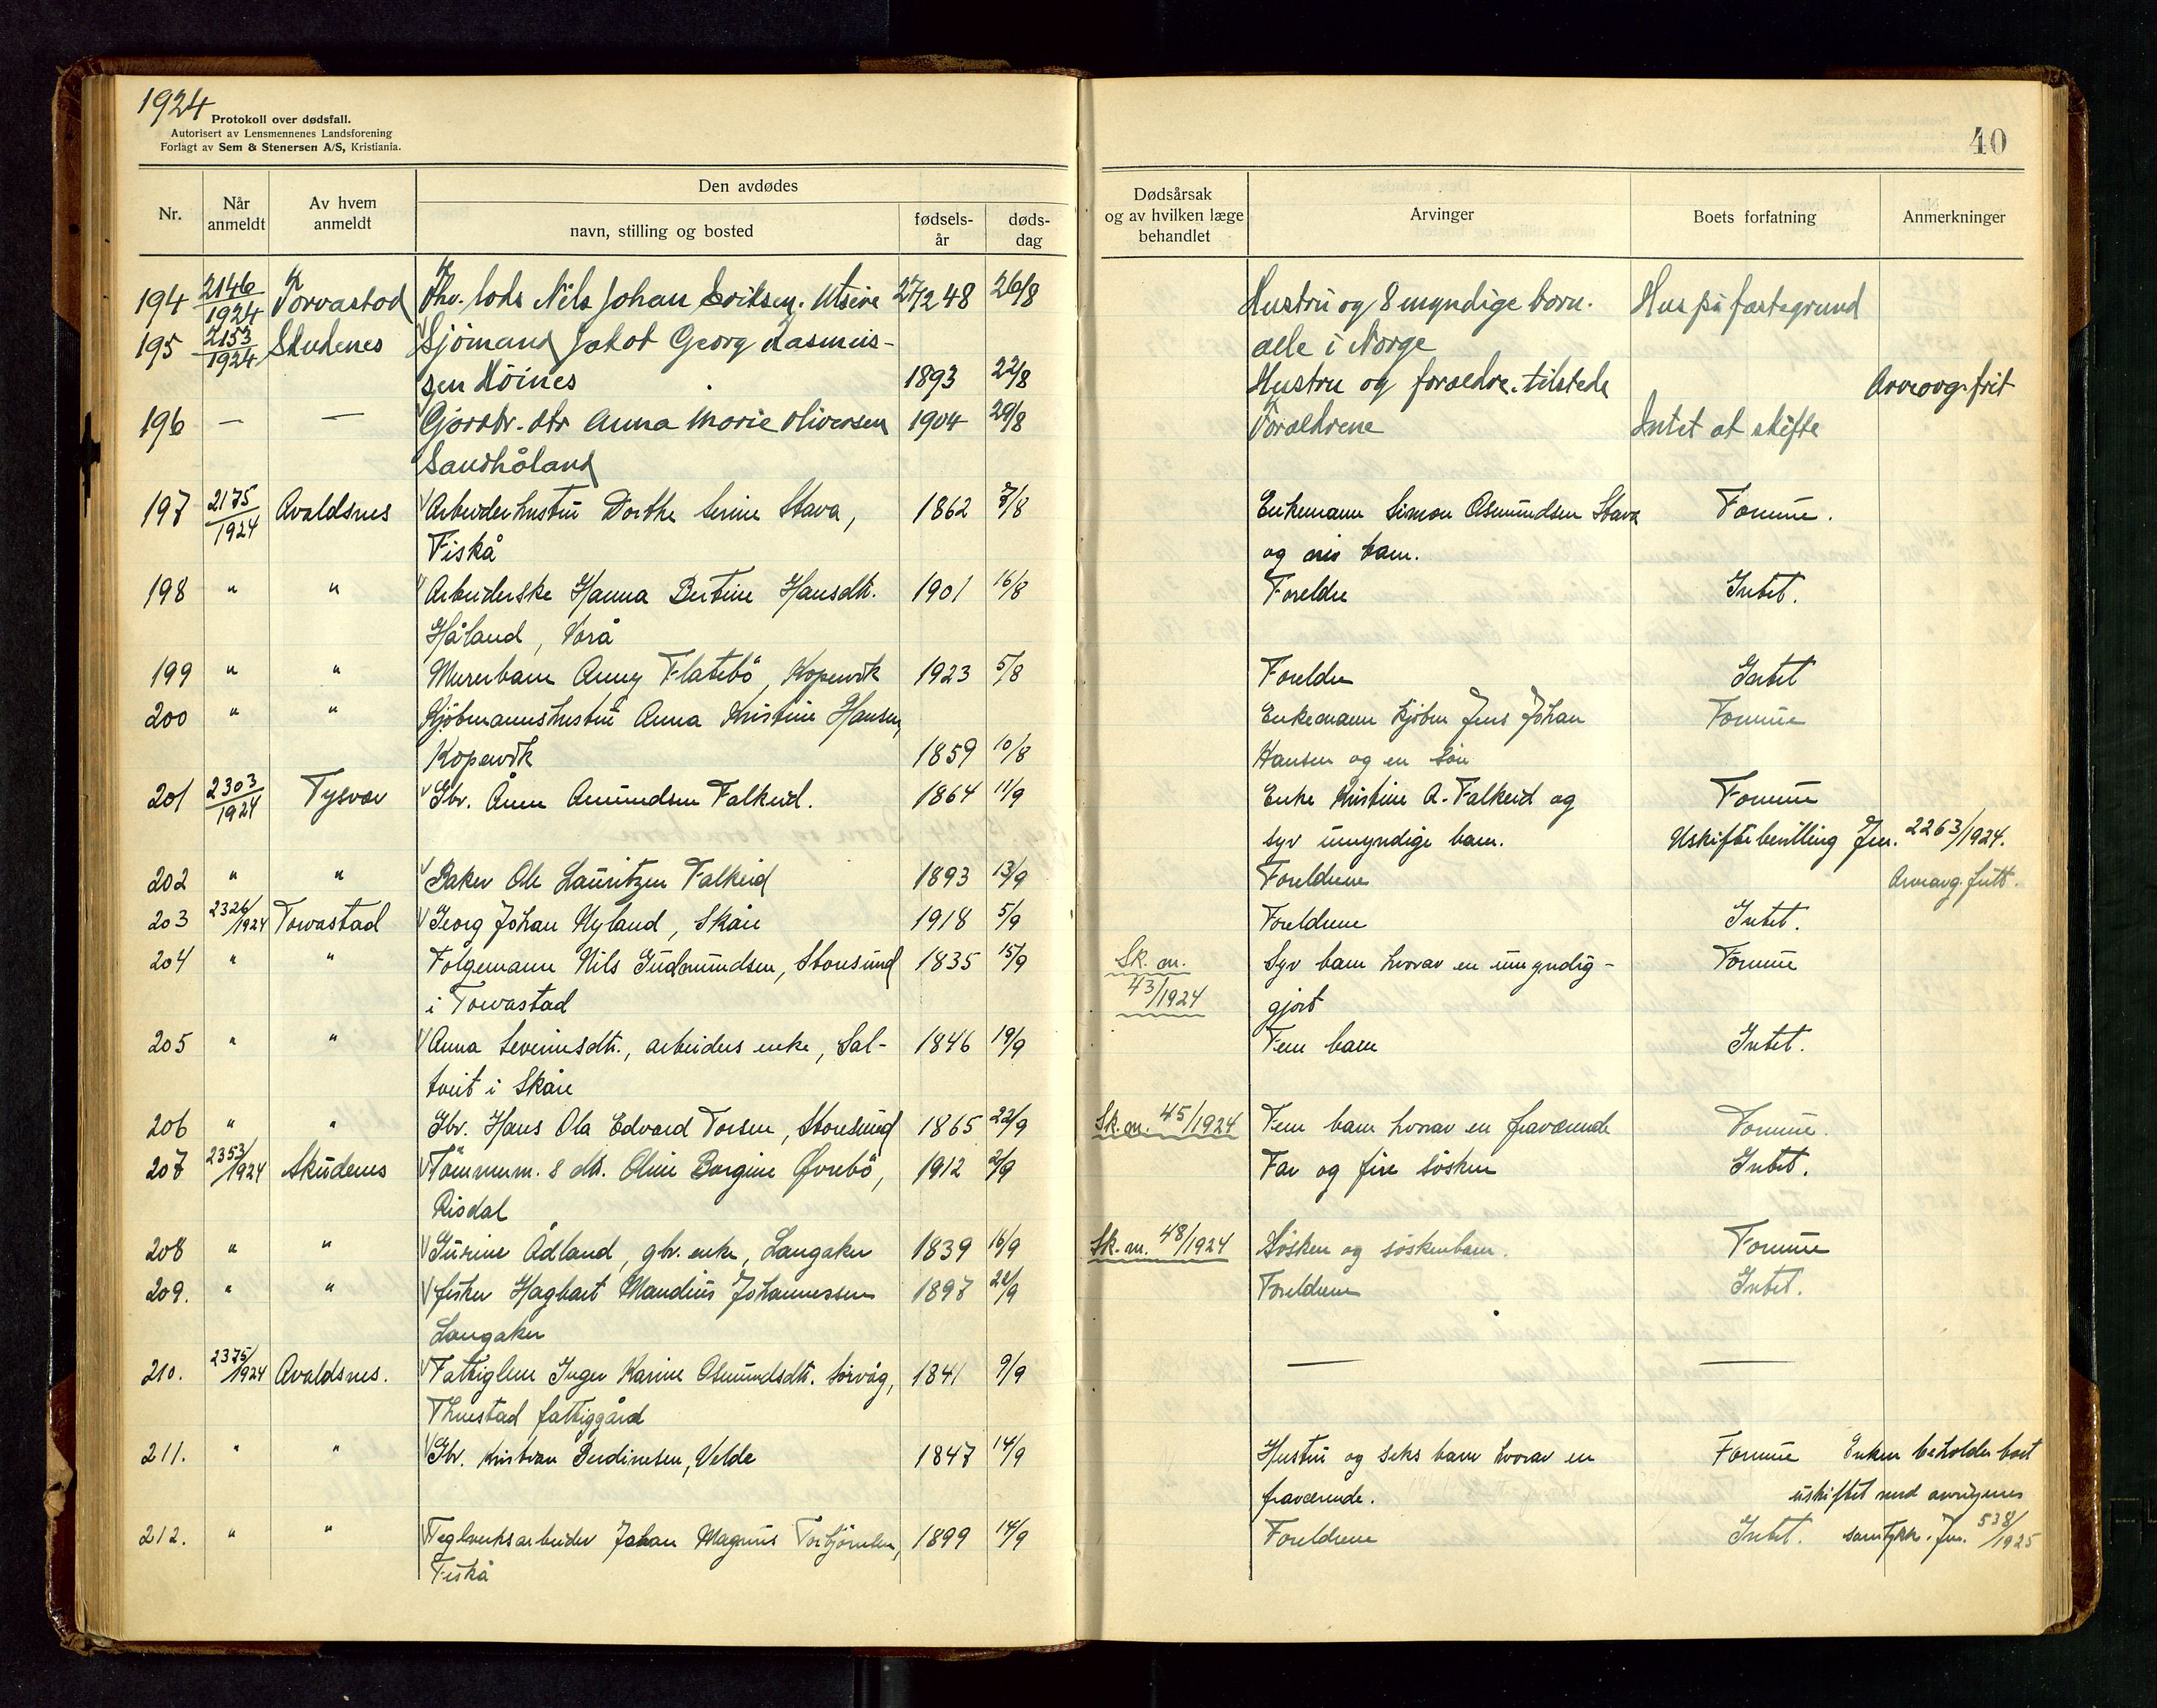 1924
Protokoll over dødsfall.
Autorisert av Lensmennenes Landsforening
Forlagt av Sem & Stenersen A/S, Kristiania.
40
Nr. Når anmeldt Av hvem anmeldt Den avdødes navn, stilling og bosted fødsels-år døds-dag Dødsårsak og av hvilken læge behandlet Arvinger Boets forfatning Anmerkninger
194 2146/1924 Torvastad Fhv. lods Nils Johan Eriksen. Utsire 27/2 48 26/8 Hustru og 8 myndige barn. Hus på festegrund
195 2153/1924 Skudenes Sjømand Jakob Georg Rasmus- alle i Norge
sen Höines 1893 22/8 Hustru og forældre. tilstede Arveavg. frit
196 — — Gjørtlr. dtr Anna Marie Oliversen 1904 29/8 Forældrene Intet at skifte
Sandhåland
197 2175/1924 Avaldsnes Arbeiderhustru Dorthe Serine Stava, 1862 7/8 Enkemann Simon Osmundsen Stava Formue.
Fiskå og barn.
198 " " Arbeiderske Hanna Bertine Hansdtr. 1901 16/8 Foreldre Intet.
Håland, Vorå
199 " " Murerbarn Anny Flatebö, Kopervik 1923 5/8 Foreldre Intet
200 " " Kjöbmannshustru Anna Kristine Hansen, Enkemann kjöbm Jens Johan Formue
Kopervik 1859 10/8 Hansen og en sön
201 2303/1924 Tysvær Gbr. Ånen Amundsen Falkeid. 1864 11/9 Enke Kristine A. Falkeid og Formue
syv umyndige barn. Uskiftebevilling Jnr. 2263/1924.
202 " " Baker Ole Lauritzen Falkeid 1893 13/9 Foreldrene Arveavg. fritt.
203 2326/1924 Torvastad Georg Johan Nyland, Skåre 1918 5/9 Foreldrene Intet.
204 " " Følgemann Nils Gudmundsen, Storesund 1835 15/9 Sk. m. Syv barn hvorav en umyndig- Formue
i Torvastad 43/1924 gjort
205 " " Anna Severinsdtr., arbeiders enke, Sal- 1846 19/9 Fem barn Intet.
tveit i Skåre
206 " " Gbr. Hans Ola Edvard Torsen, Storesund 1865 22/9 Sk. m. 45/1924 Fem barn hvorav en fraværende Formue.
207 2353/1924 Skudenes Tömmerm. s dtr. Oline Bergine Øvrebö, 1912 2/9 Far og fire søsken Intet.
Risdal
208 " " Gurine Ådland, gbr. enke, Langaker 1839 16/9 Sk. m. 48/1924 Søsken og søskenbarn. Formue
209. " " fisker Hagbart Mandius Johannessen 1897 22/9 Foreldrene Intet.
Langaker
210. 2375/1924 Avaldsnes. Fattiglem Inger Karine Osmundsdtr. Sörvåg, 1841 9/9 — —
Thuestad fattiggård
211. " " Gbr. Kristian Berdinesen, Velde 1847 14/9 Hustru og seks barn hvorav en Formue Enken beholder boet
fraværende. uskiftet med arvingenes
212. " " Teglverksarbeider Johan Magnus Torbjörnsen, 1899 14/9 Foreldrene Intet. samtykke. Jnr. 538/1925
Fiskå